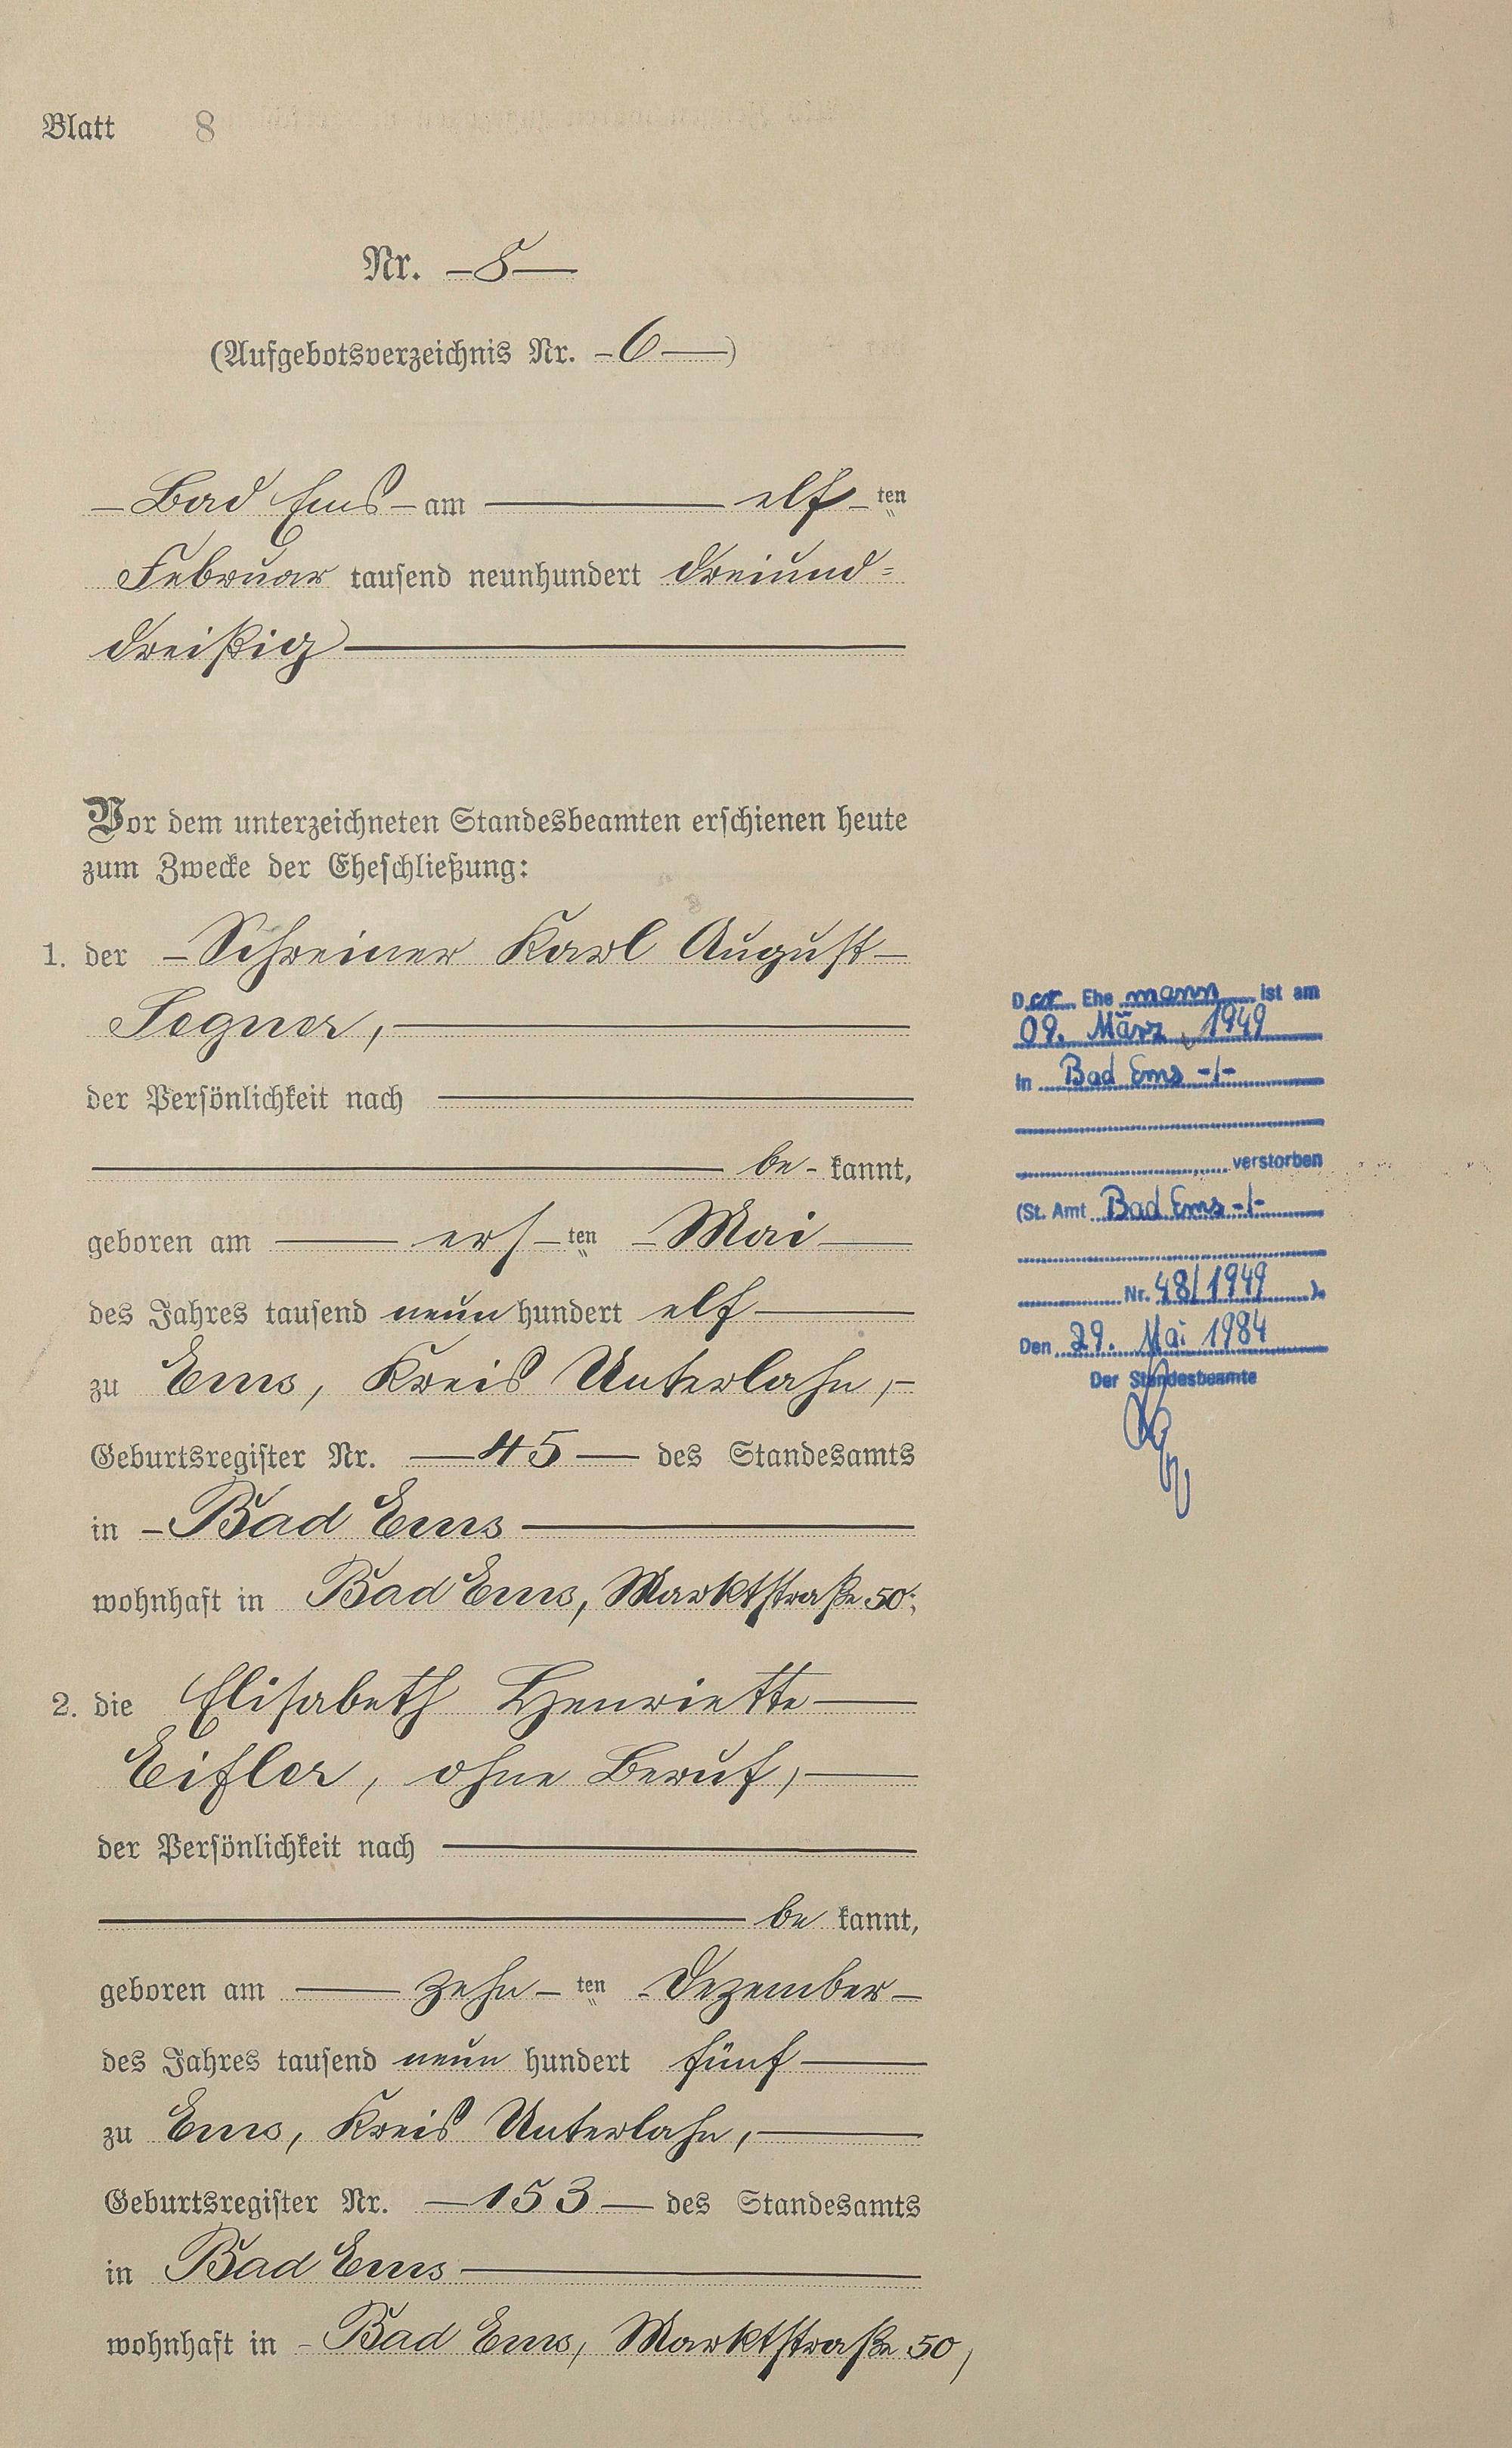 Blatt 8
Nr. – 8 —
(Aufgebotsverzeichnis Nr. – 6 —)
– Bad Ems – am — elf – ten
Februar tausend neunhundert dreiund=
dreißig —
Vor dem unterzeichneten Standesbeamten erschienen heute
zum Zwecke der Eheschließung:
1. der – Schreiner Karl August –
Segner, —
der Persönlichkeit nach —
— be – kannt,
geboren am — ers – ten – Mai —
des Jahres tausend neun hundert elf —
zu Ems, Kreis Unterlahn, –
Geburtsregister Nr. — 45 — des Standesamts
in – Bad Ems —
wohnhaft in Bad Ems, Marktstraße 50;
2. die Elisabeth Henriette —
Eifler, ohne Beruf, —
der Persönlichkeit nach —
— be kannt,
geboren am — zehn – ten – Dezember –
des Jahres tausend neun hundert fünf —
zu Ems, Kreis Unterlahn, —
Geburtsregister Nr. — 153 — des Standesamts
in Bad Ems —
wohnhaft in – Bad Ems, Marktstraße 50,
Der Ehe mann ist am
09. März 1949
in Bad Ems -/-
verstorben
(St. Amt Bad Ems -/-
Nr. 48/1949 ).
Den 29. Mai 1984
Der Standesbeamte